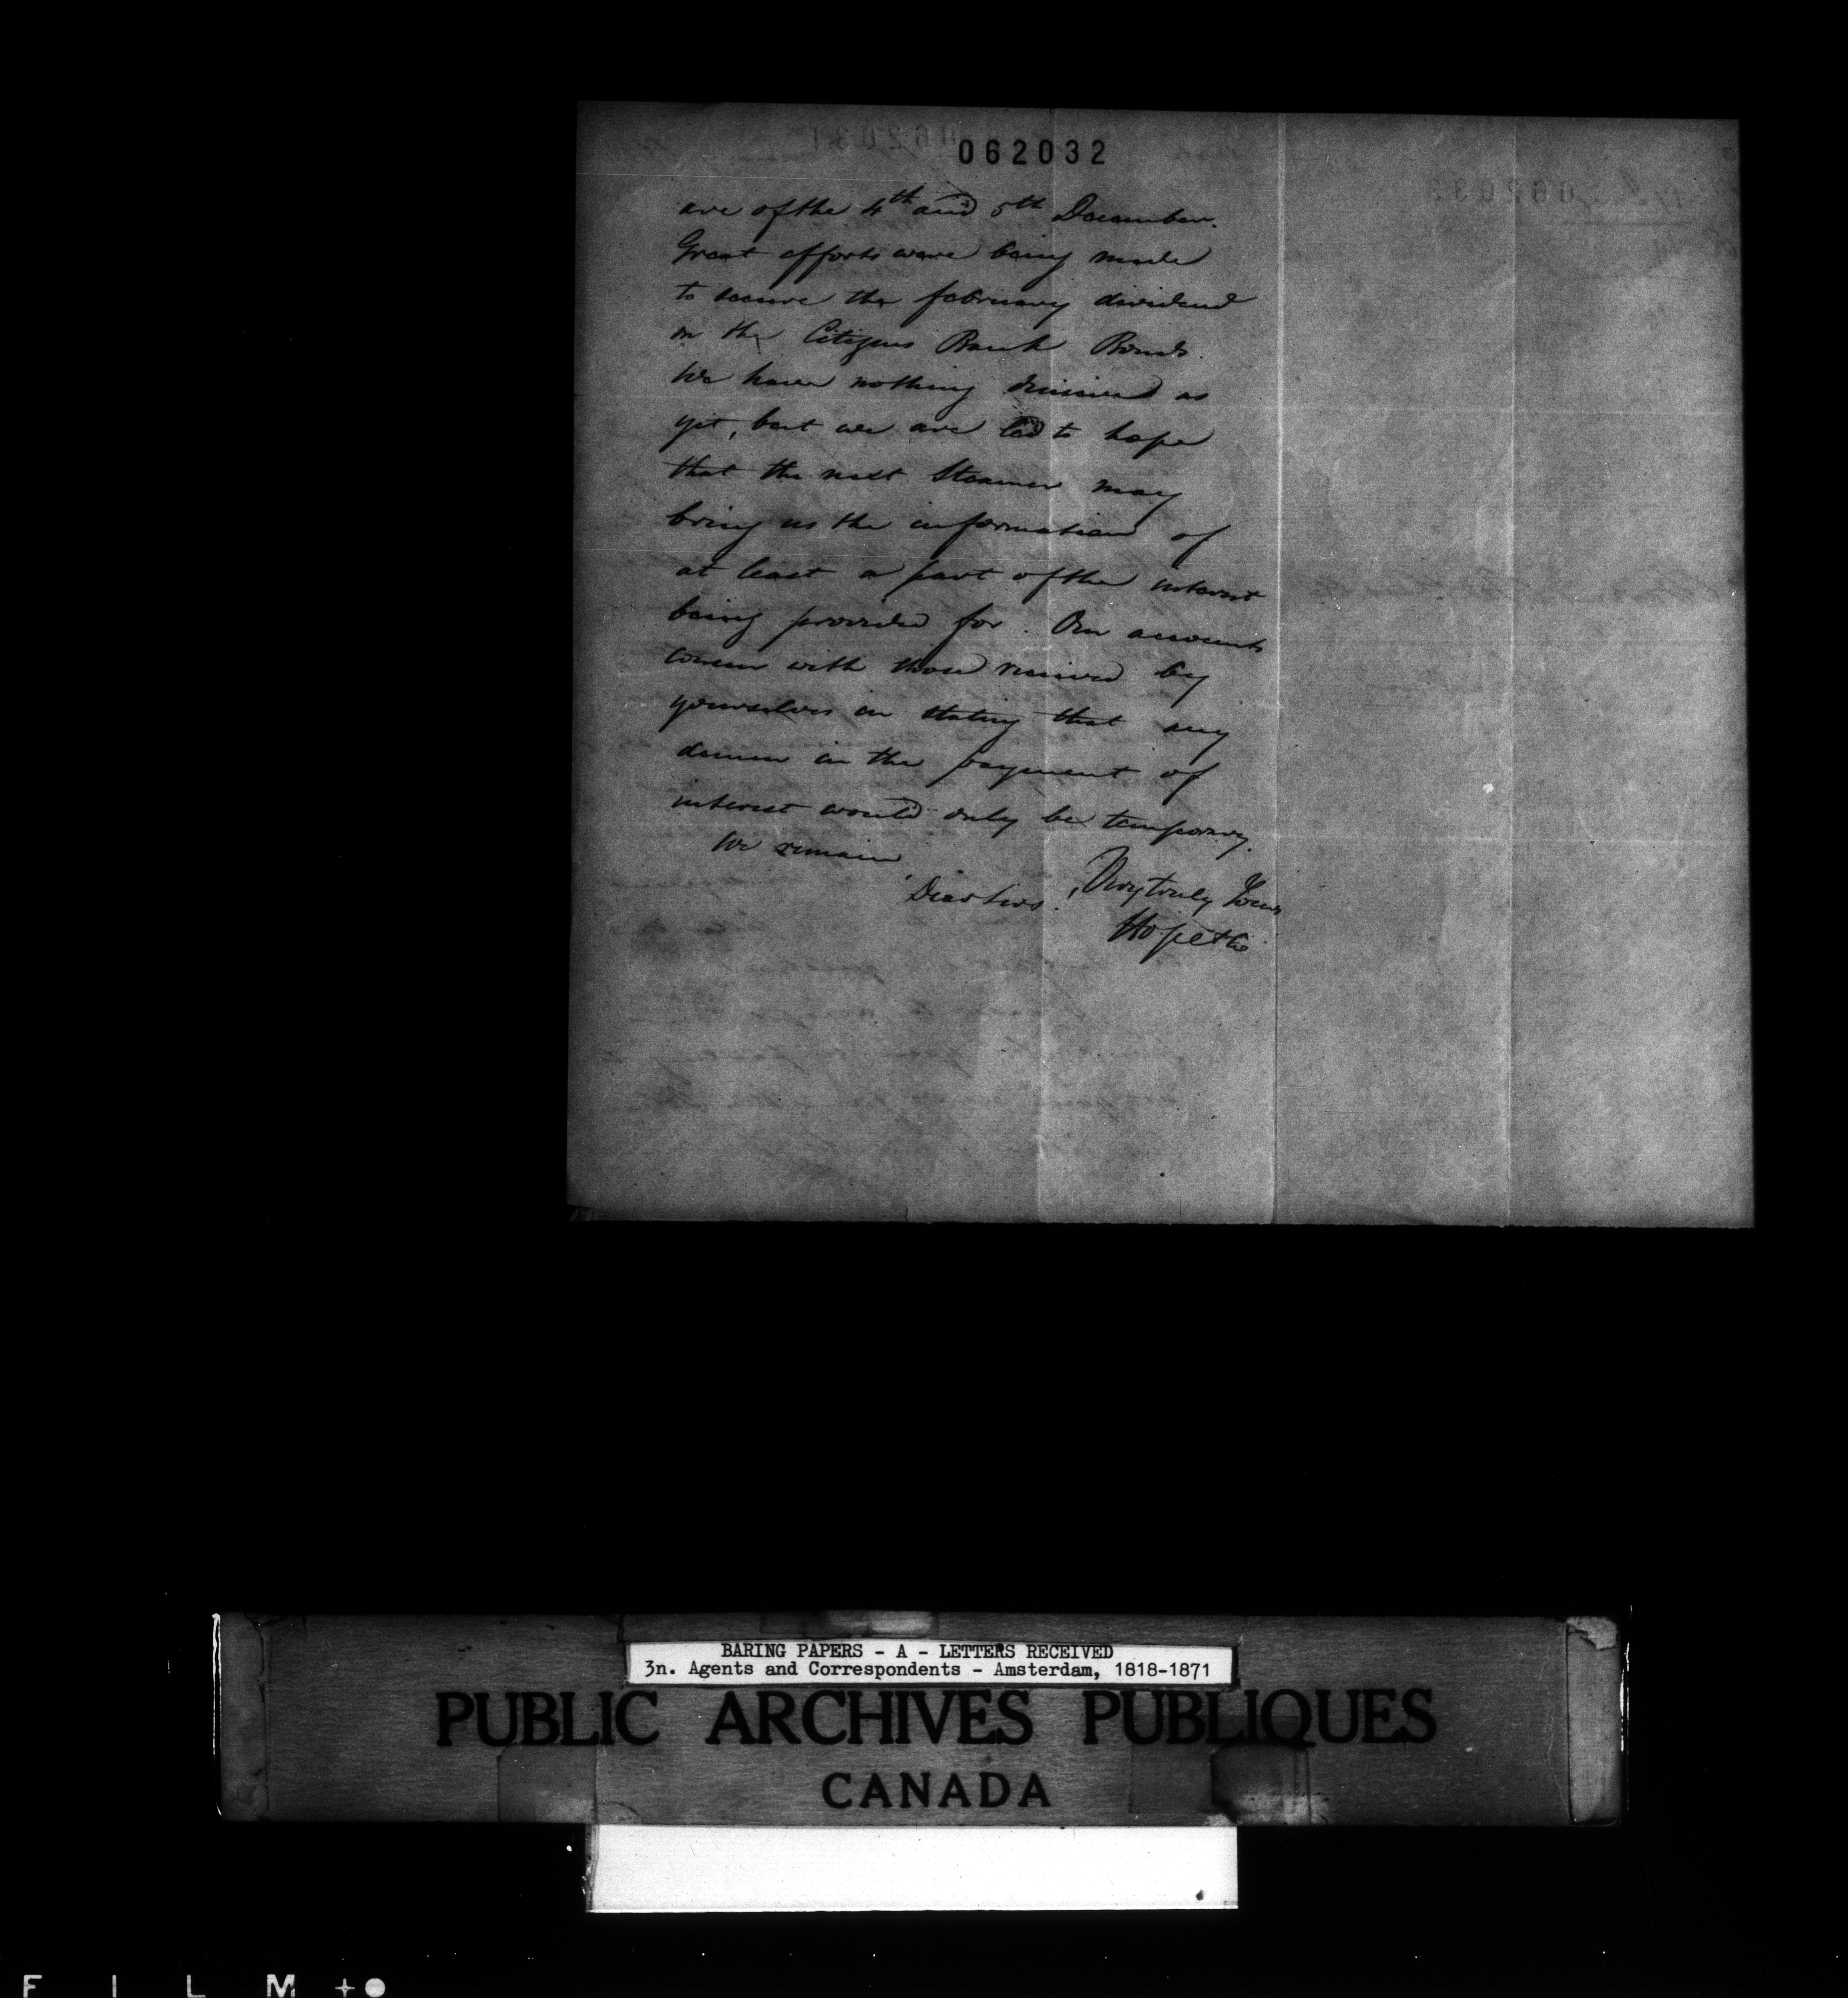 062032
are of the 4th and 5th December.
Great efforts were being made
to secure the february dividend
on the Citizens Bank Bonds.
We have nothing decisive as
yet, but we are led to hope
that the next Steamer may
bring us the information of
at least a part of the interest
being provided for. Our accounts
concur with those received by
yourselves in stating that any
in the payment of
interest would only be temporary.
We remain
Dear Sirs. Very truly Yours
Hope & Co
BARING PAPERS - A - LETTERS RECEIVED
3n. Agents and Correspondents - Amsterdam, 1818-1871
PUBLIC ARCHIVES PUBLIQUES
CANADA
FILM